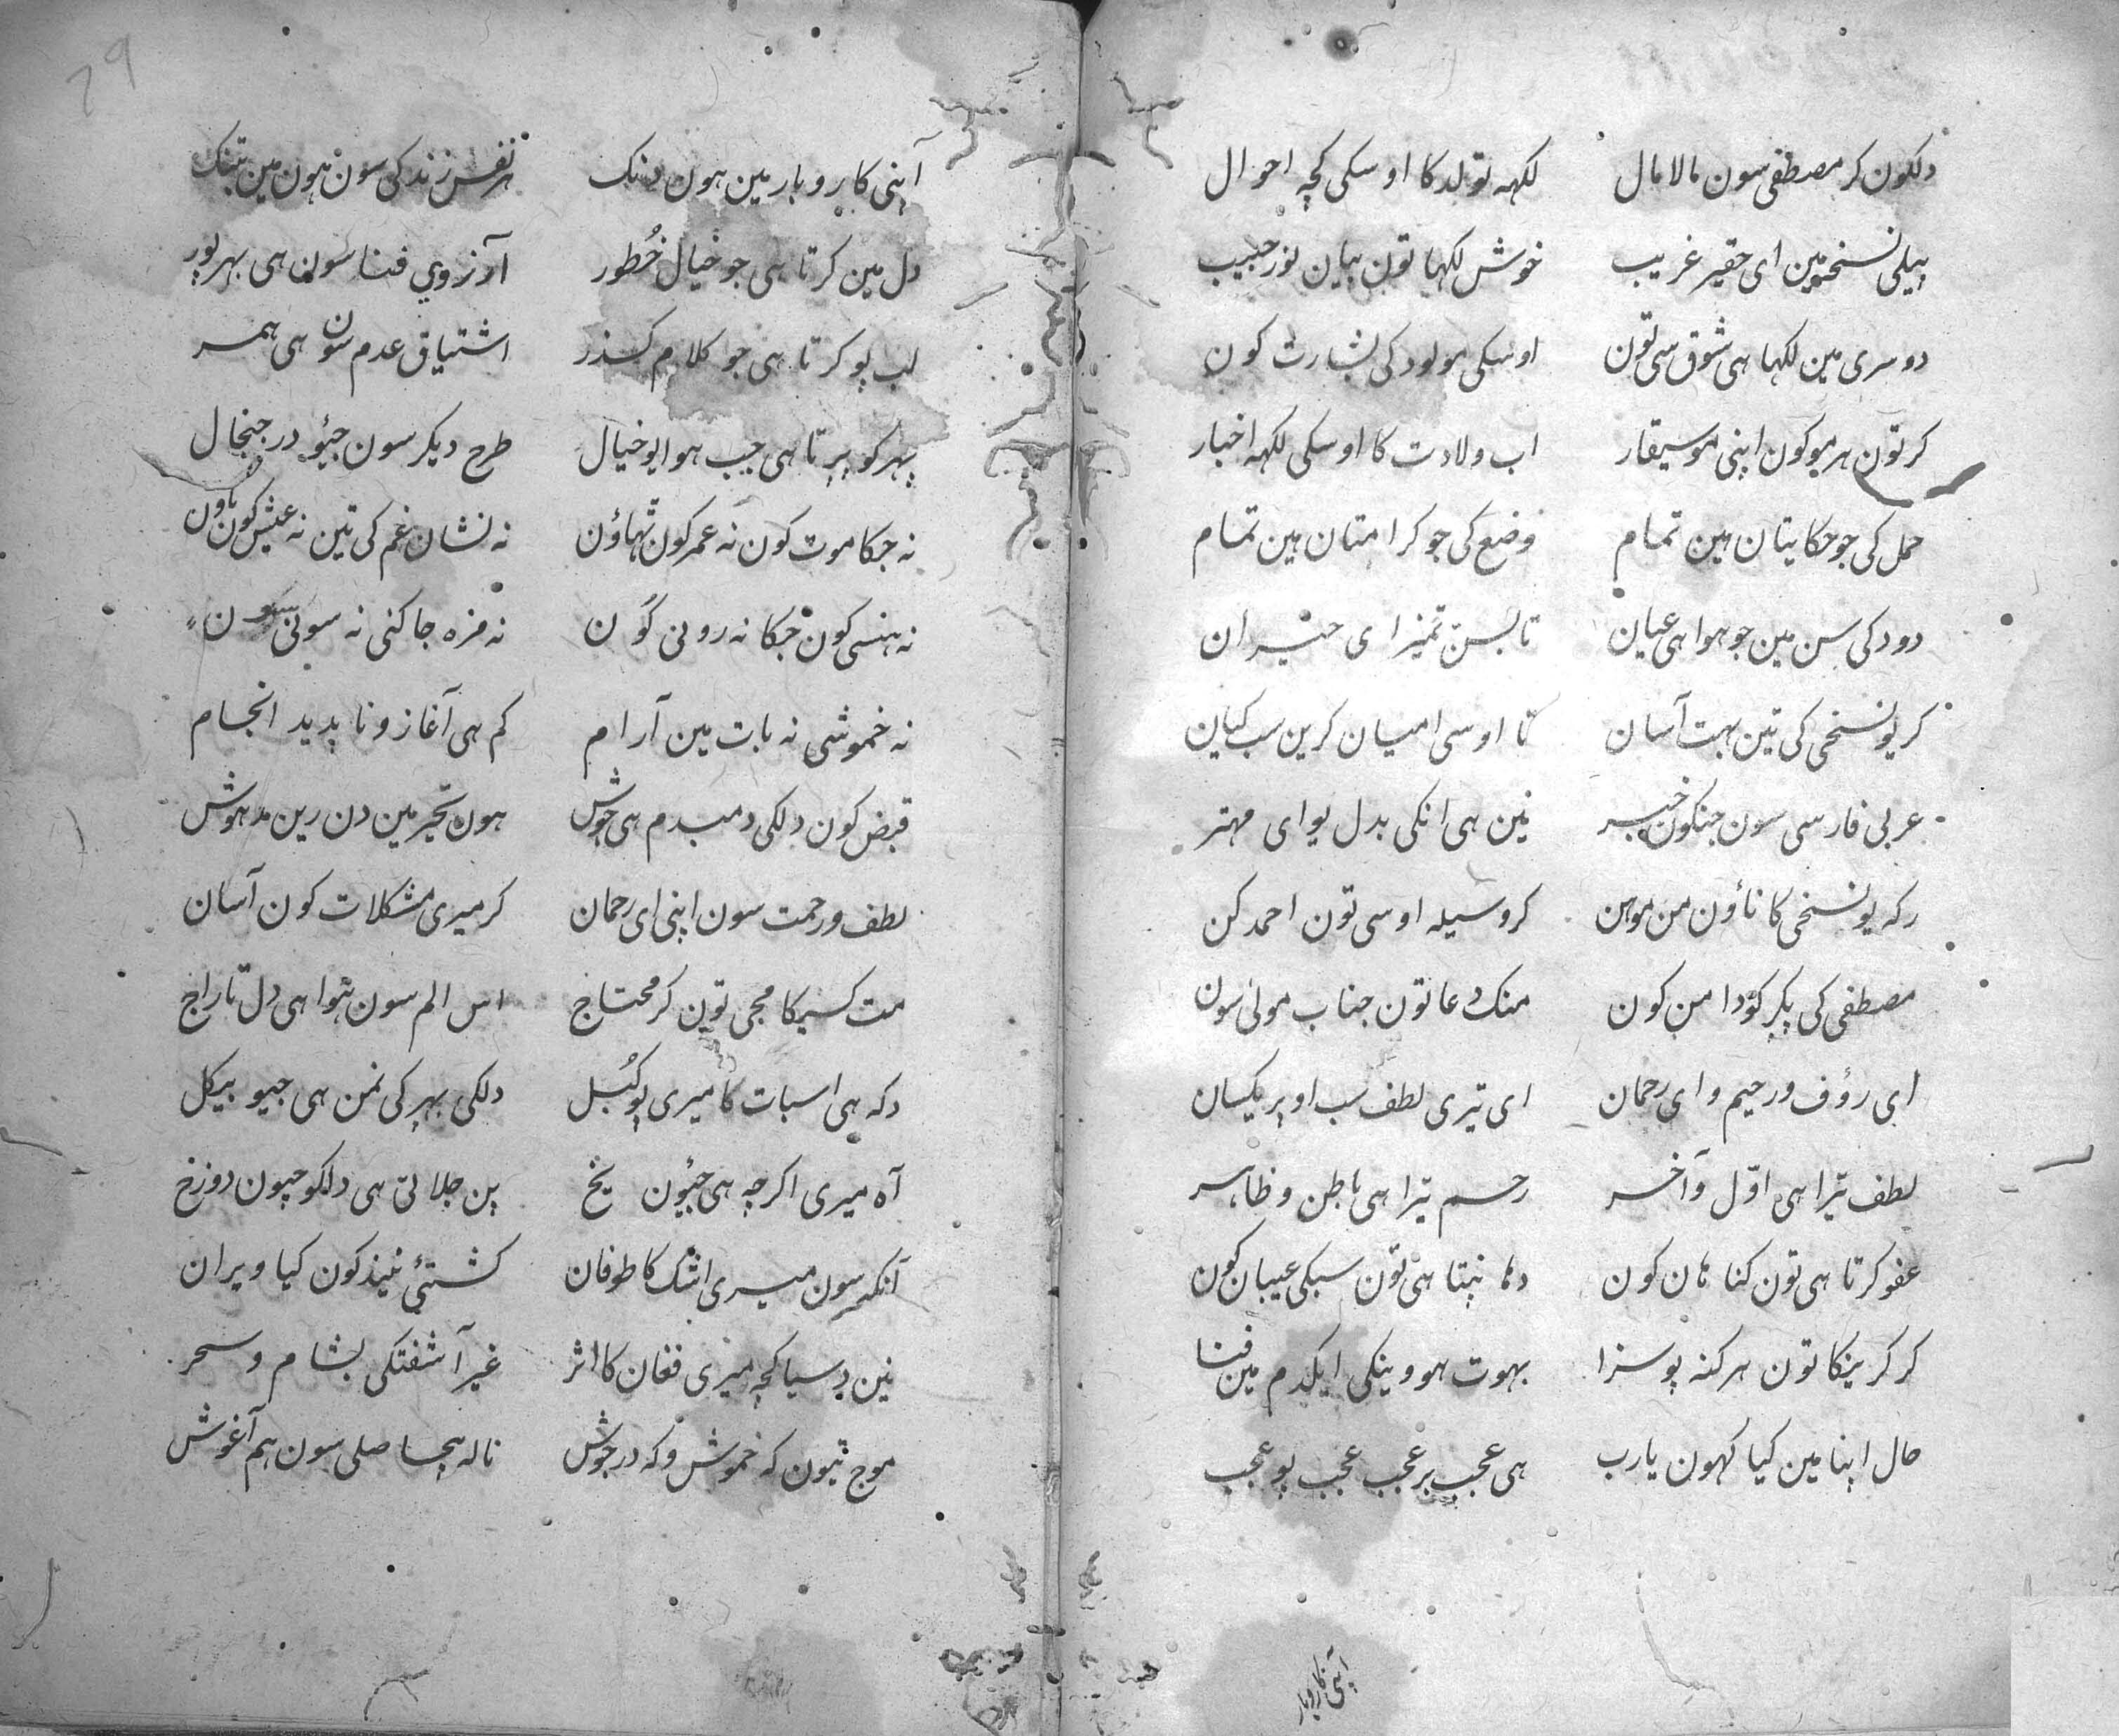 دلکون کر مصطفی سون مالامال لکهه تولد کا اوسکی کچه احوال
پیلی نسخمین ای حقیر غریب خوش لکها تون بیان نور حبیب
دوسری مین لکها هی شوق سی تون اوسکی مولود کی بشارت کون
کر تون هر موکون اپنی موسیقار اب ولادت کا اوسکی لکهه اخبار
حمل کی جو حکایتان هین تمام وضع کی جو کرامتان هین تمام
دود کی سن مین جو هوا هی عیان تا بسن تمیز ای
کر یو نسخی کی تین بهت آسان تا اوسی امیان کرین سب کیان
عربی فارسی سون جنکون خبر نین هی انکی بدل یو ای مهتر
رکه یو نسخی کا ناؤن من موهن کر وسیله اوسی تون احمد کن
مصطفی کی پکر کؤ دامن کون منک دعا تون جناب مولی سون
ای رؤف و رحیم و ای رحمان ای تیری لطف سب اوپر یکسان
لطف تیرا هی اوّل و آخر رحم تیرا هی باطن و ظاهر
عفو کرتا هی تون کناهان کون دهانپتا هی تون سبکی عیبان کون
کر کرینکا تون هر کنه پو سزا بهوت هووینکی ایکدم مین فنا
حال اپنا مین کیا کهون یارب هی عجب بر عجب عجب پو عجب
اپنی کاروبار
79
اپنی کاروبار مین هون دنک هر نفس زندکی سون هون مین تنک
دل مین کرتا هی جو خیال خُطور آرزوی فنا سون هی بهرپور
لب پو کرتا هی جو کلام کذر اشتیاق عدم سون هی همسر
پهر کو پرتا هی جیب هوا یو خیال طرح دیکر سون جیؤ در جنجال
نه جکا موت کون نه عمر کون تهاؤن نه نشان غم کی تین نه عیش کون ناون
نه هنسی کون جکا نه رونی کون نه مزه جاکنی نه سونی سون
نه خموشی نه بات مین آرام کم هی آغاز و ناپدید انجام
قبض کون دلکی دمبدم هی جوش هون تحیر مین دن رین مدهوش
لطف و رحمت سون اپنی ای رحمان کر میری مشکلات کون آسان
مت کسیکا مجی تون کر محتاج اس الم سون هوا هی دل تاراج
دکه هی اسبات کا میری پو کُبل دلکی بهر کی نمن هی جیو بیکل
آه میری اکرچه هی جیون یخ پن جلاتی هی دلکو جیون دوزخ
آنکهه سون میری اشک کا طوفان کشتیٔ نیند کون کیا ویران
نین دسیا کچه میری فغان کا اثر غیر آشفتکی بشام و سحر
موج نمون که خموش و که در جوش ناله بیحاصلی سون هم آغوش